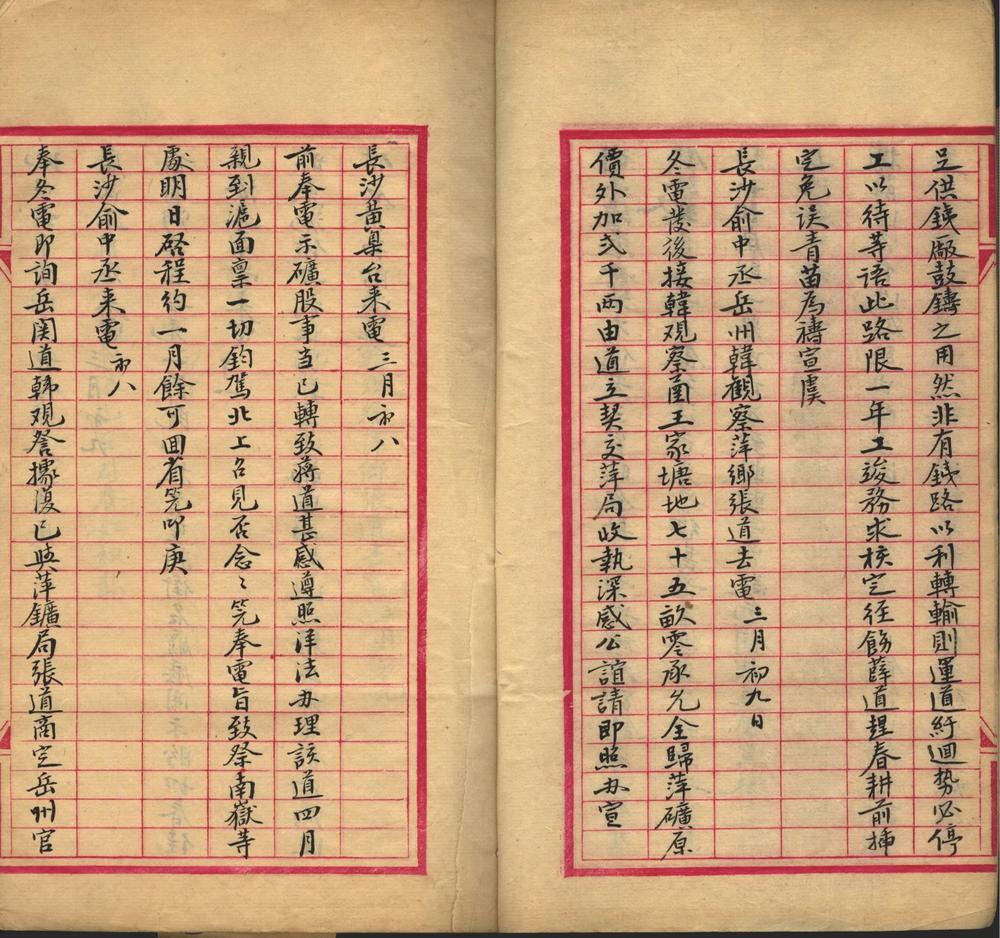 足供鉄廠鼓鑄之用然非有鉄路以利轉輸則運道紆迴势必停
工以待等语此路限一年工竣務求核定径飭薛道趕春耕前插
定免误青苗為禱宣虞
長沙俞中丞岳州韓觀察萍鄉張道去電三月初九日
冬電發後接韓观察圅王家塘地七十五畝零承允全歸萍礦原
價外加弍千两由道立契交萍局收執深感公誼請即照办宣
長沙黄臬台来電三月初八
前奉電示礦股事当已轉致蒋道甚感遵照洋法办理該道四月
親到滬面禀一切鈞駕北上召見否念〻筅奉電旨致祭南嶽等
處明日啓程約一月餘可囬省筅叩庚
長沙俞中丞来電初八
奉冬電即询岳関道韩观詧據復已與萍鑛局張道商定岳州官